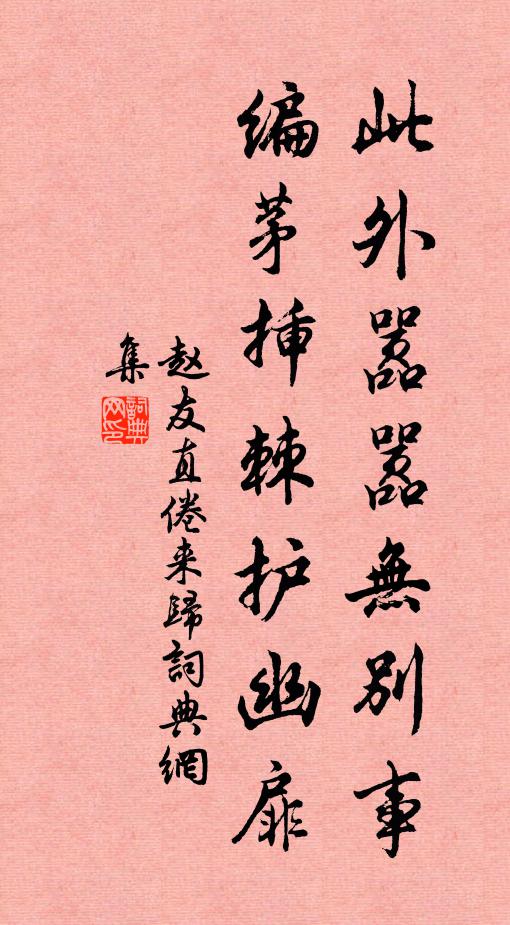 此外嚣嚣無别事
编茅揷棘护幽扉
赵友直倦来歸詞典網
集
詞典網印